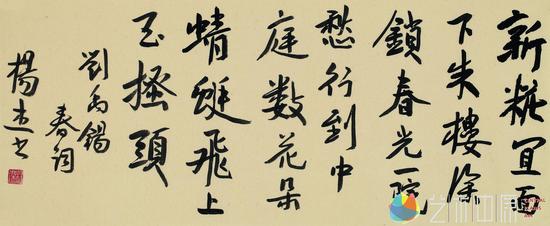 新粧宜面
下朱樓深
鎖春光一院
愁行到中
庭數花朵
蜻蜓飛上
玉搔頭
劉禹錫
春詞
楊 书
艺术中原